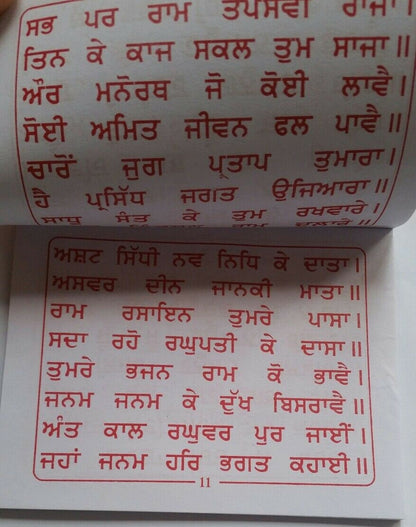 ਸਭ ਪਰ ਰਾਮ ਤਪਸਵੀ ਰਾਜਾ।
ਤਿਨ ਕੇ ਕਾਜ ਸਕਲ ਤੁਮ ਸਾਜਾ॥
ਔਰ ਮਨੋਰਥ ਜੋ ਕੋਈ ਲਾਵੈ।
ਸੋਈ ਅਮਿਤ ਜੀਵਨ ਫਲ ਪਾਵੈ॥
ਚਾਰੋਂ ਜੁਗ ਪ੍ਰਤਾਪ ਤੁਮਾਰਾ।
ਹੈ ਪ੍ਰਸਿੱਧ ਜਗਤ ਉਜਿਆਰਾ॥
ਸਾਧੁ ਸੰਤ ਕੇ ਤੁਮ ਰਖਵਾਰੇ।
ਅਸ਼ਟ ਸਿੱਧੀ ਨਵ ਨਿਧਿ ਕੇ ਦਾਤਾ।
ਅਸਵਰ ਦੀਨ ਜਾਨਕੀ ਮਾਤਾ॥
ਰਾਮ ਰਸਾਇਨ ਤੁਮਰੇ ਪਾਸਾ।
ਸਦਾ ਰਹੋ ਰਘੁਪਤੀ ਕੇ ਦਾਸਾ॥
ਤੁਮਰੇ ਭਜਨ ਰਾਮ ਕੋ ਭਾਵੈ।
ਜਨਮ ਜਨਮ ਕੇ ਦੁੱਖ ਬਿਸਰਾਵੈ॥
ਅੰਤ ਕਾਲ ਰਘੁਵਰ ਪੁਰ ਜਾਈਂ।
ਜਹਾਂ ਜਨਮ ਹਰਿ ਭਗਤ ਕਹਾਈ॥
11